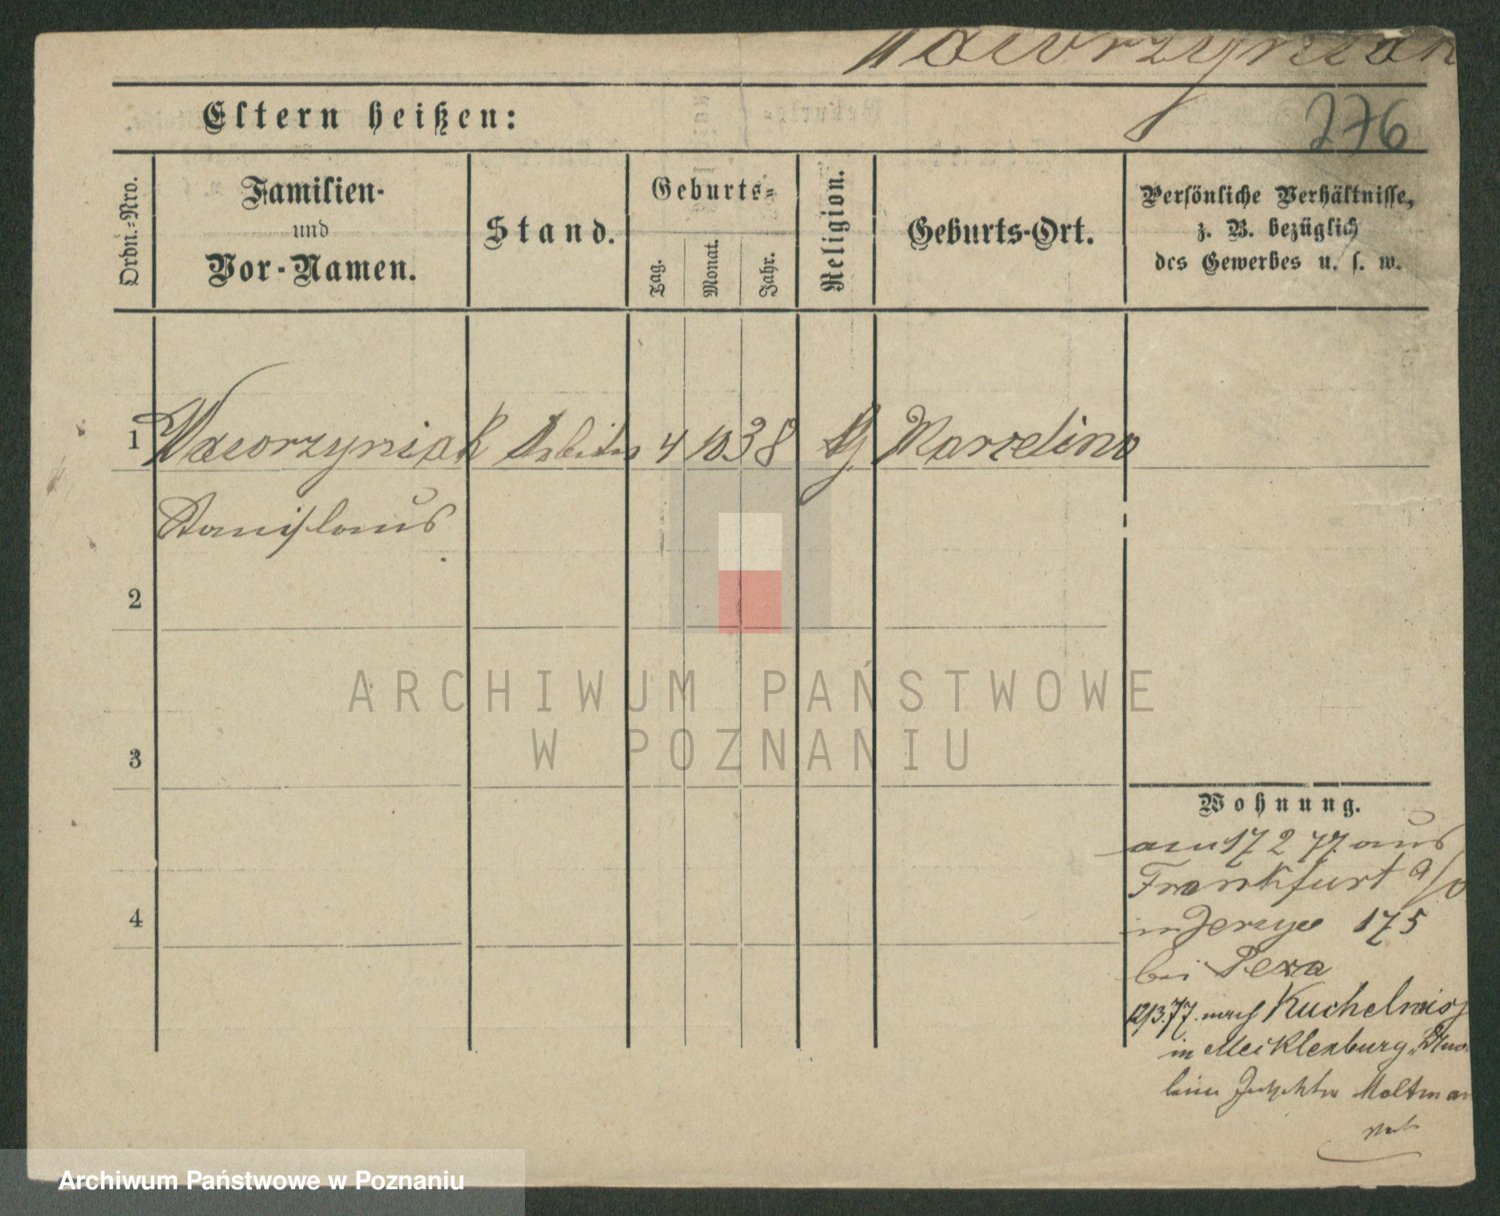 Wawrzyniak
276
Eltern heißen:
Ordn.-Nro.
Familien-
und
Vor-Namen.
Stand.
Geburts-
Tag.
Monat.
Jahr.
Religion.
Geburts-Ort.
Persönliche Verhältnisse,
z. B. bezüglich
des Gewerbes u. s. w.
1 Wawrzyniak Arbeiter 4 10 38 Marzelino
Stanislaus
2
3
4
Wohnung.
am 17 2 77 aus
Frankfurt a/O
in Jerzyce 175
bei Pera
12/3.77. nach Kuchelmiß
in Mecklenburg
beim Inspektor Moltman
ARCHIWUM PAŃSTWOWE
W POZNANIU
Archiwum Państwowe w Poznaniu